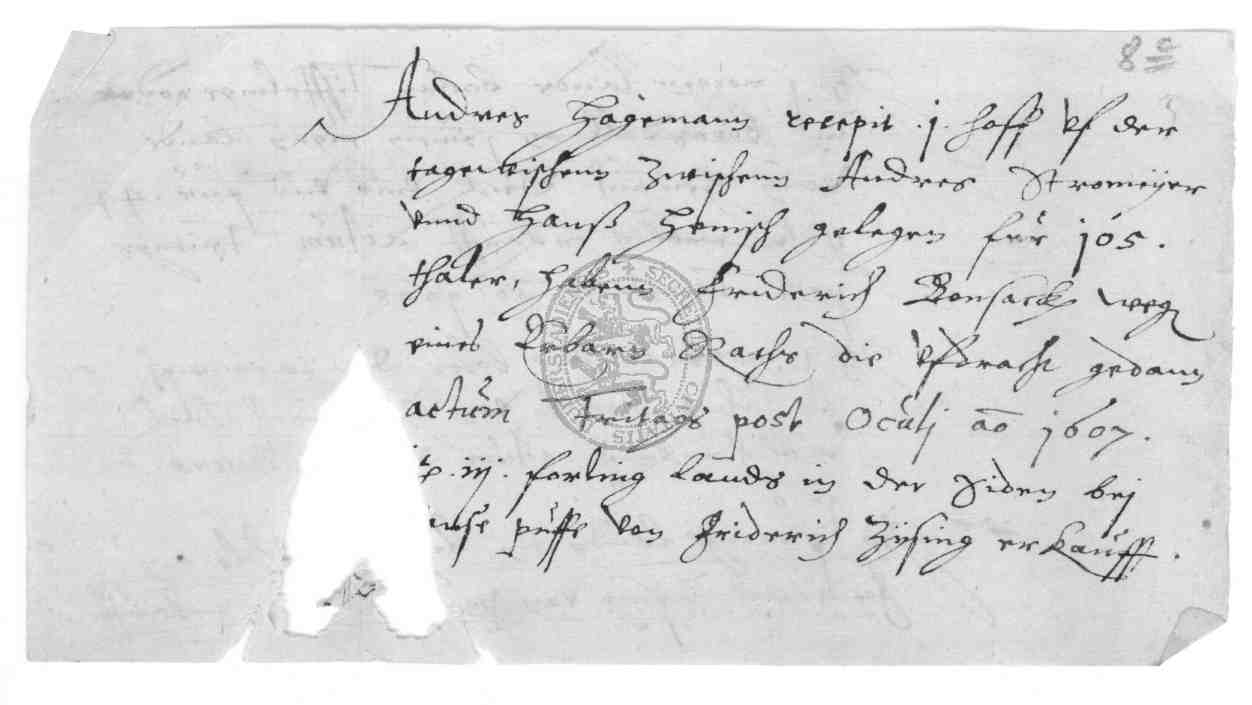 8 c
Andres Hagemann recepit .j. hoff vf der
zwischenn Andres Stromeyer
vnnd Hanß Henisch gelegen für 105.
thaler, habenn Friderich Bonsack weg
eines Erbarn Raths die vfdracht gedann
actum freitags post Oculj ao 1607.
.iij. forling lands in der siden bej
puffe von Friderich Zysing erkaufft.